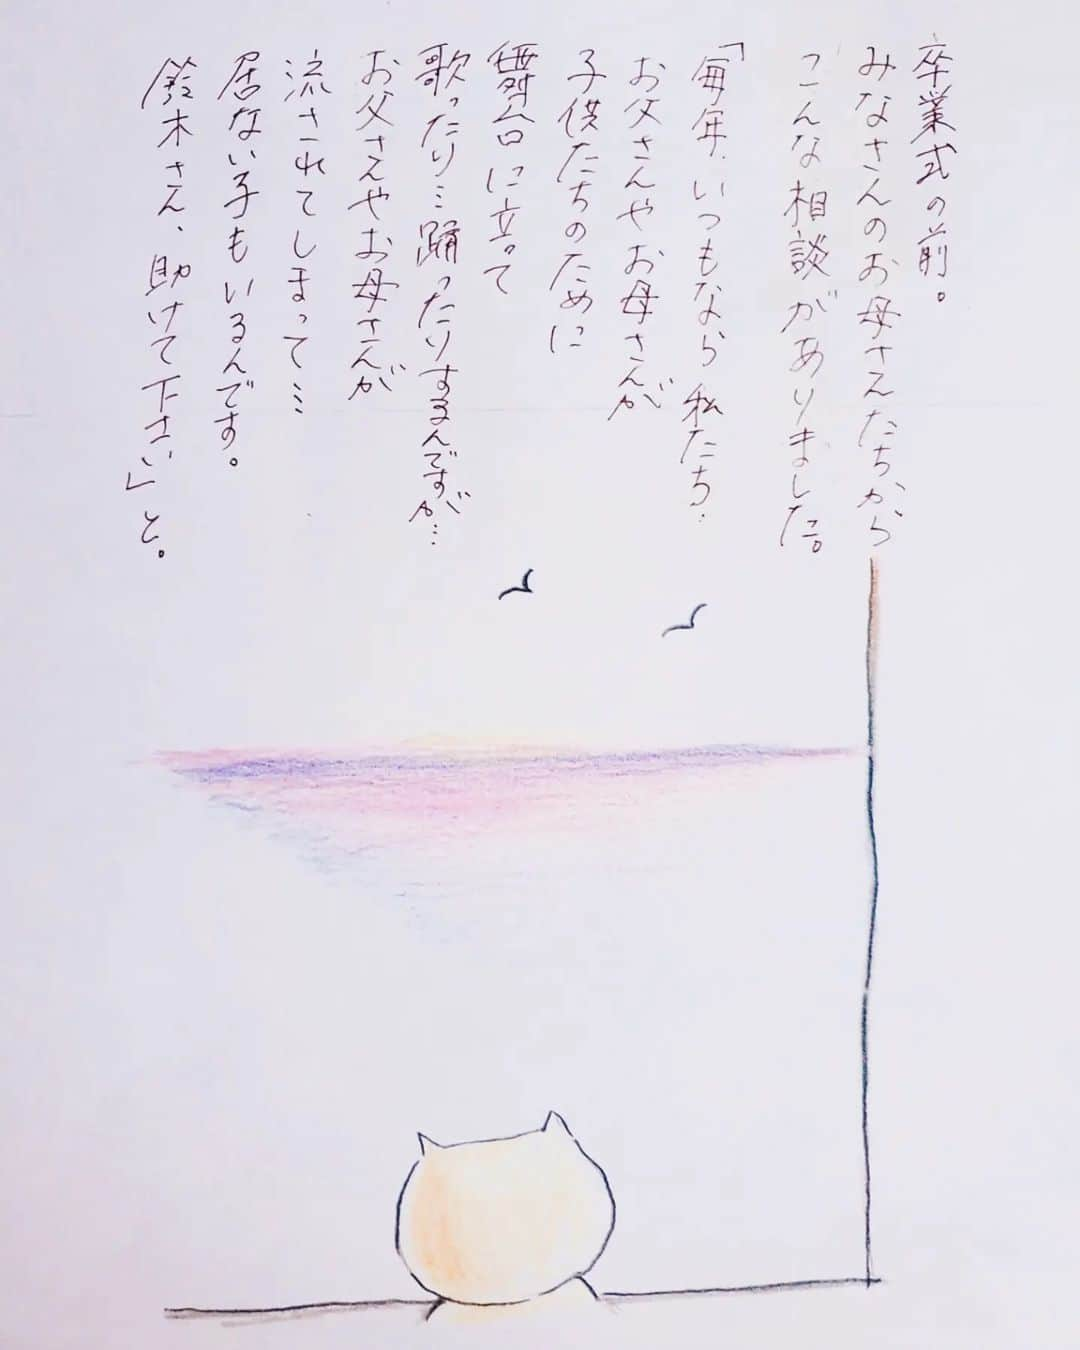 卒業式の前。
みなさんのお母さんたちから
こんな相談がありました。
「毎年、いつもなら私たち、
お父さんやお母さんが
子供たちのために
舞台に立って
歌ったり…踊ったりするんですが…
お父さんやお母さんが
流されてしまって…
居ない子もいるんです。
鈴木さん、助けて下さい」と。